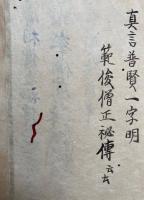 真言普賢一字明
範俊僧正祕傳云云